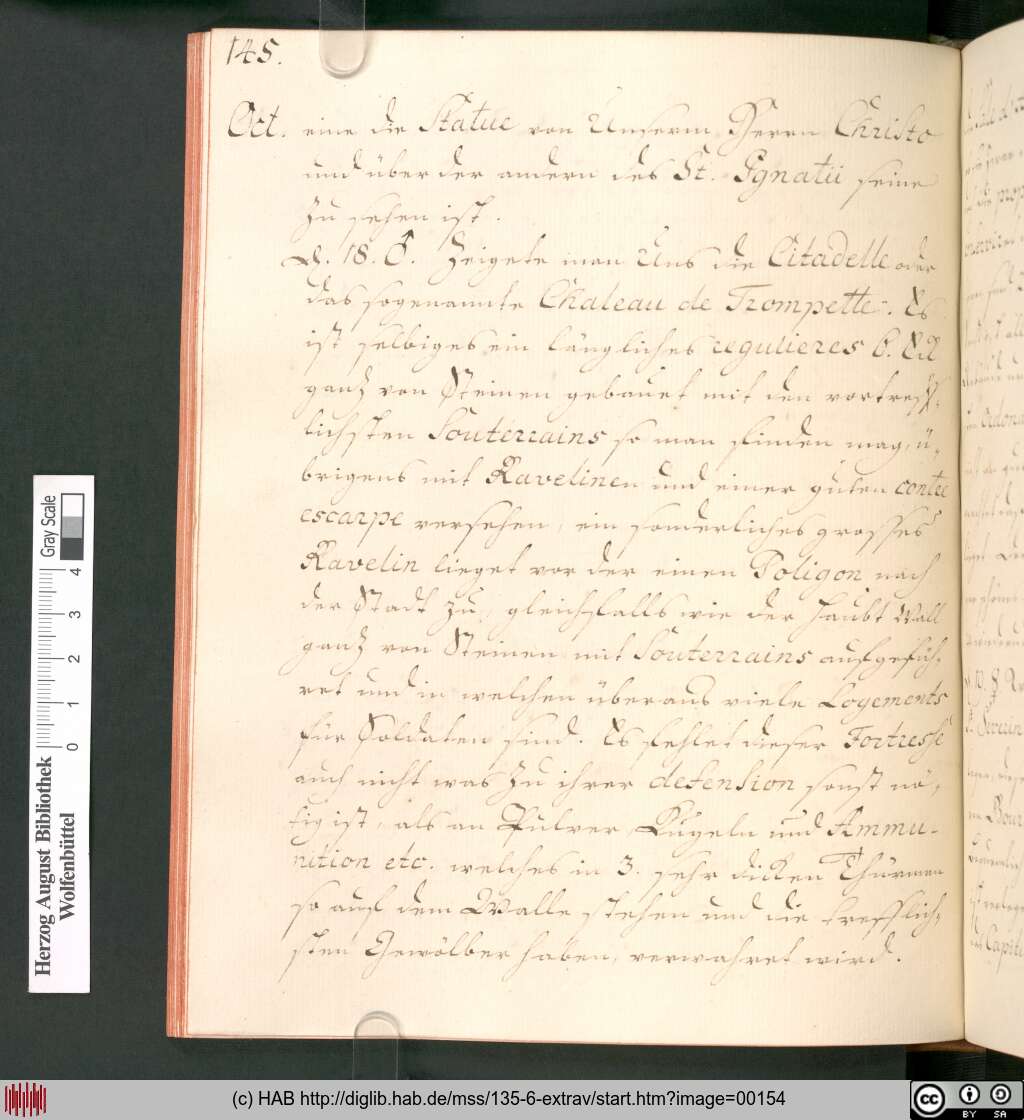 145.
Oct. eine die Statue von Unserm Herrn Christo
und über der andern des St. Ignatii seine
zu sehen ist.
D. 18. ♂. Zeigete man Uns die Citadelle oder
das sogenannte Chateau de Trompette. Es
ist selbiges ein längliches regulieres 6. Eck
ganz von Steinen gebauet mit den vortreff-
lichsten Souterrains so man finden mag, ü-
brigens mit Ravelinen und einer guten contre
escarpe versehen, ein sonderliches grosses
Ravelin lieget vor der einen Poligon nach
der Stadt zu, gleichfalls wie der Haubt Wall
ganz von Steinen mit Souterrains aufgefüh-
ret und in welchen überaus viele Logements
für Soldaten sind. Es fehlet dieser Fortresse
auch nicht was zu ihrer defension sonst nö-
tig ist, als an Pulver, Kugeln und Ammu-
nition etc. welches in 3. sehr dicken Thürmen
so auf dem Walle stehen und die trefflich-
sten Gewölber haben, verwahret wird.
Herzog August Bibliothek
Wolfenbüttel
Gray Scale
0 1 2 3 4
(c) HAB http://diglib.hab.de/mss/135-6-extrav/start.htm?image=00154
cc BY SA